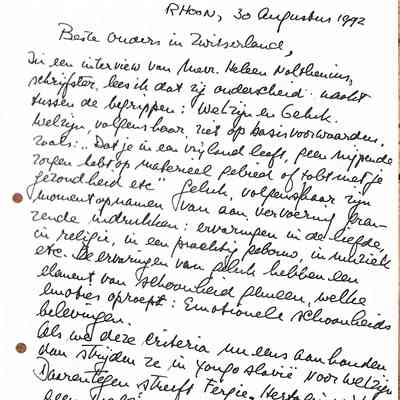 RHOON, 30 Augustus 1992
Beste ouders in Zwitserland,
In een interview van Mevr. Heleen Nolthenius,
schrijfster, lees ik dat zij onderscheid maakt
tussen de begrippen: Welzijn en Geluk.
Welzijn, volgens haar, ziet op basisvoorwaarden,
zoals: "Dat je in een vrij land leeft, geen nijpende
zorgen hebt op materieel gebied of tobt met je
gezondheid etc" Geluk, volgens haar zijn
momentopnamen van aan vervoering gren-
zende indrukken: ervaringen in de liefde,
in religie, in een prachtig gebouw, in muziek
etc. De ervaringen van geluk hebben een
element van schoonheid gemeen, welke
emoties oproept: Emotionele schoonheids
belevingen.
Als we deze criteria nu eens aanhouden
dan strijden ze in Joegoslavië voor welzijn
Daarentegen streeft Fergie